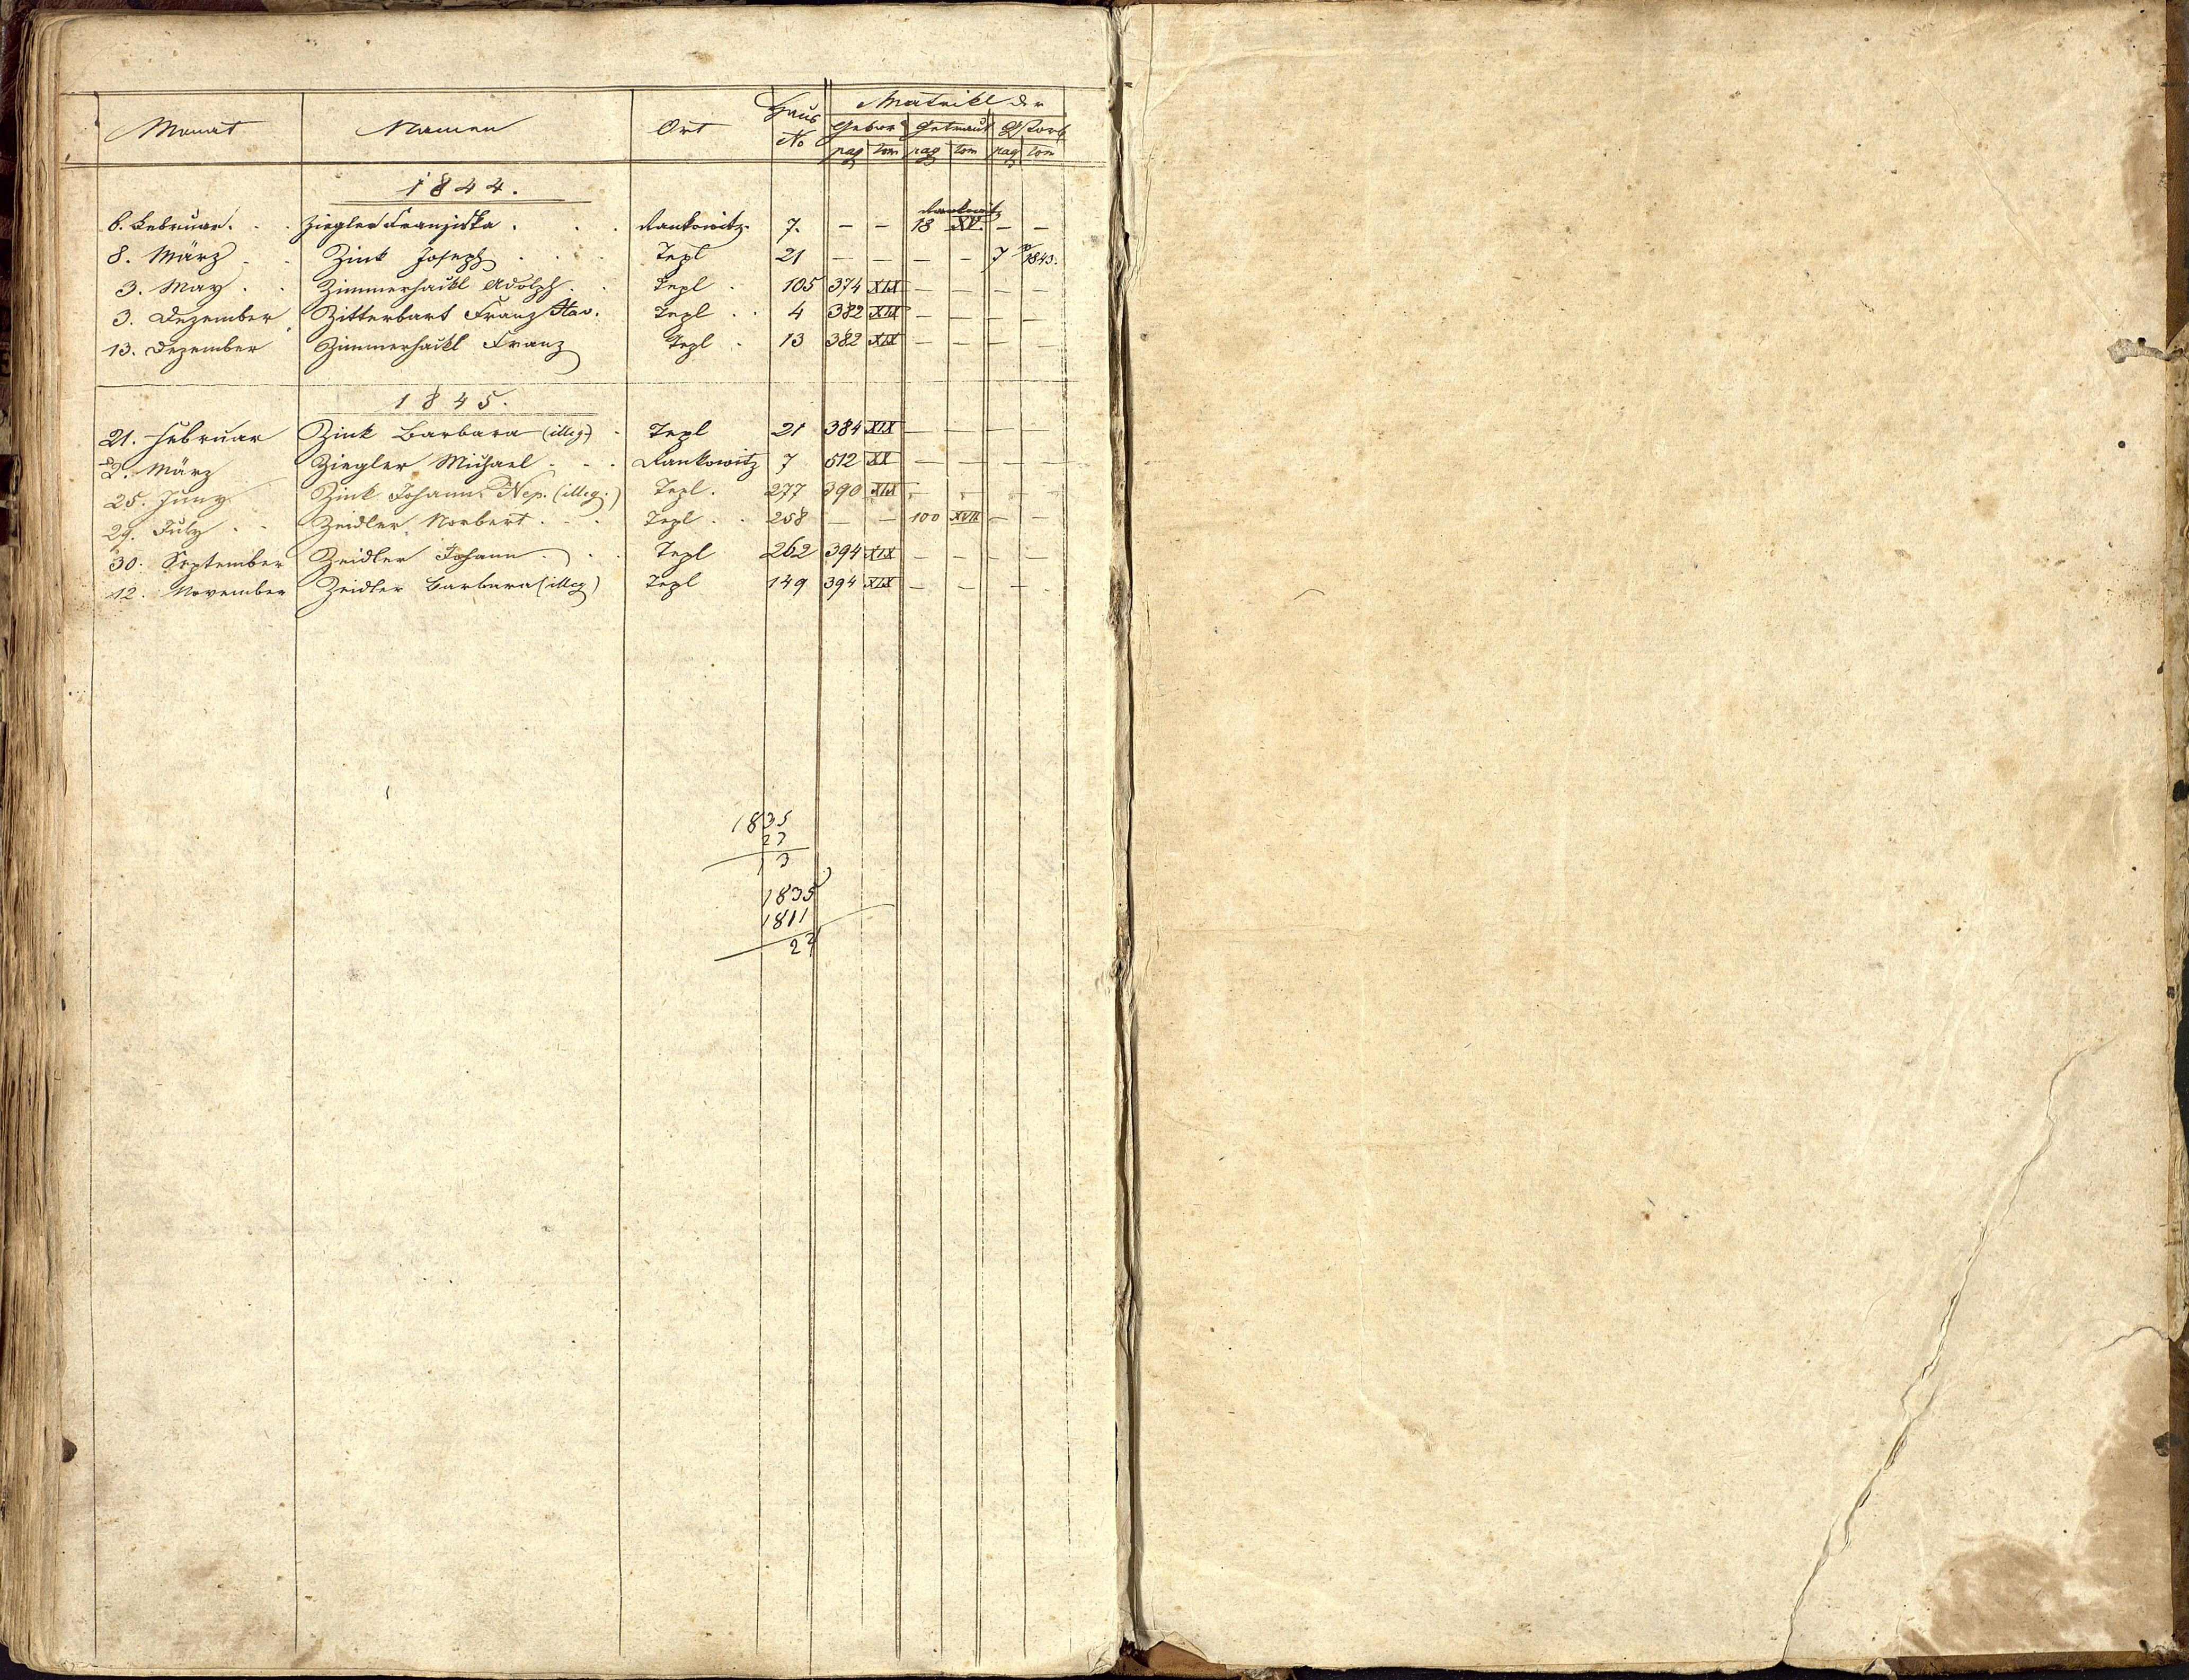 Monat Namen Ort Haus No Matrikl der
Gebor Getraut Gstorb
pag tom pag tom pag tom
1844.
6. Februar. Ziegler Franziska. Rankowitz. 7. — — 18 XV. — —
Rankowitz
8. März Zink Joseph Tepl 21 — — — — 7 1843.
3. May. Zimmerhackl Adolph. Tepl. 105 374 XIX — — — —
3. Dezember Zitterbart Franz Xav. Tepl 4 382 XIX — — — —
13. Dezember Zimmerhackl Franz Tepl. 13 382 XIX — — — —
1845.
21. Februar Zink Barbara (illeg.) Tepl 21 384 XIX — — — —
2. März Ziegler Michael Rankowitz 7 512 XX — — — —
25. Juny Zink Johann Nep. (illeg.) Tepl. 277 390 XIX — — — —
29. July Zeidler Norbert Tepl. 258 — — 100 XVII — —
30. September Zeidler Johann Tepl 262 394 XIX — — — —
12. November Zeidler Barbara (illeg) Tepl 149 394 XIX — — —
1835
23
13
1835
1811
24